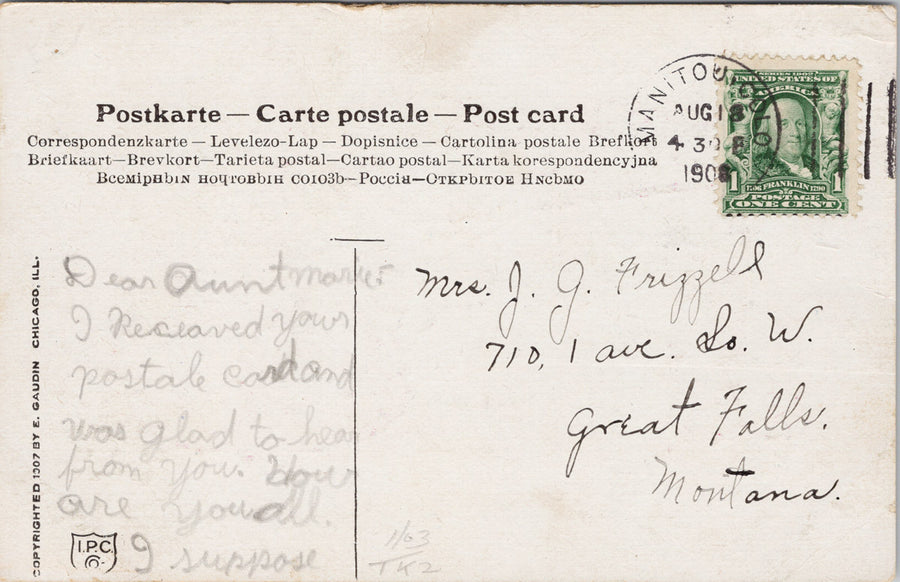 Postkarte — Carte postale — Post card
Correspondenzkarte — Levelezo-Lap — Dopisnice — Cartolina postale Brefkort
Briefkaart—Brevkort—Tarieta postal—Cartao postal—Karta korespondencyjna
Всемірнbін ноụтовbін союзb—Россіа—Откpbітое Писbмо
MANITOU
AUG 18
4 30 P
1908
SERIES 1902
UNITED STATES OF
AMERICA
1706 FRANKLIN 1790
1 POSTAGE 1
ONE CENT
Dear Aunt
I Receaved your
postale card and
was glad to hear
from you. How
are you all.
I suppose
Mrs. J. G. Frizzell
710, 1 ave. So. W.
Great Falls.
Montana.
COPYRIGHTED 1907 BY E. GAUDIN CHICAGO, ILL.
I.P.C.
Co.
1/63
TK2